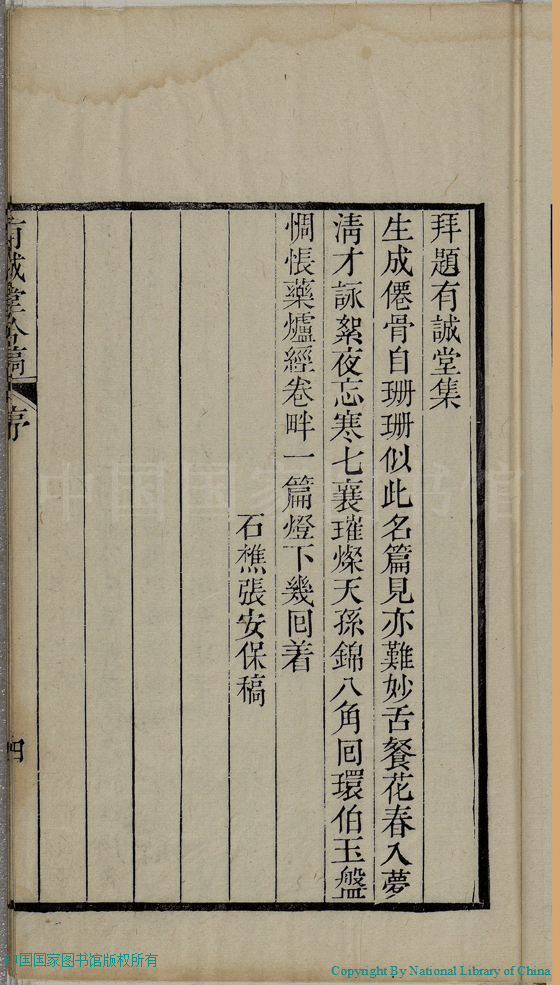 拜題有誠堂集
生成僊骨自珊珊似此名篇見亦難妙舌餐花春入夢
淸才詠絮夜忘寒七襄璀燦天孫錦八角囘環伯玉盤
惆悵藥爐經卷畔一篇燈下幾囘着
石樵張安保稿
有誠堂合稿
序
四
中国国家图书馆
中国国家图书馆版权所有
Copyright By National Library of China